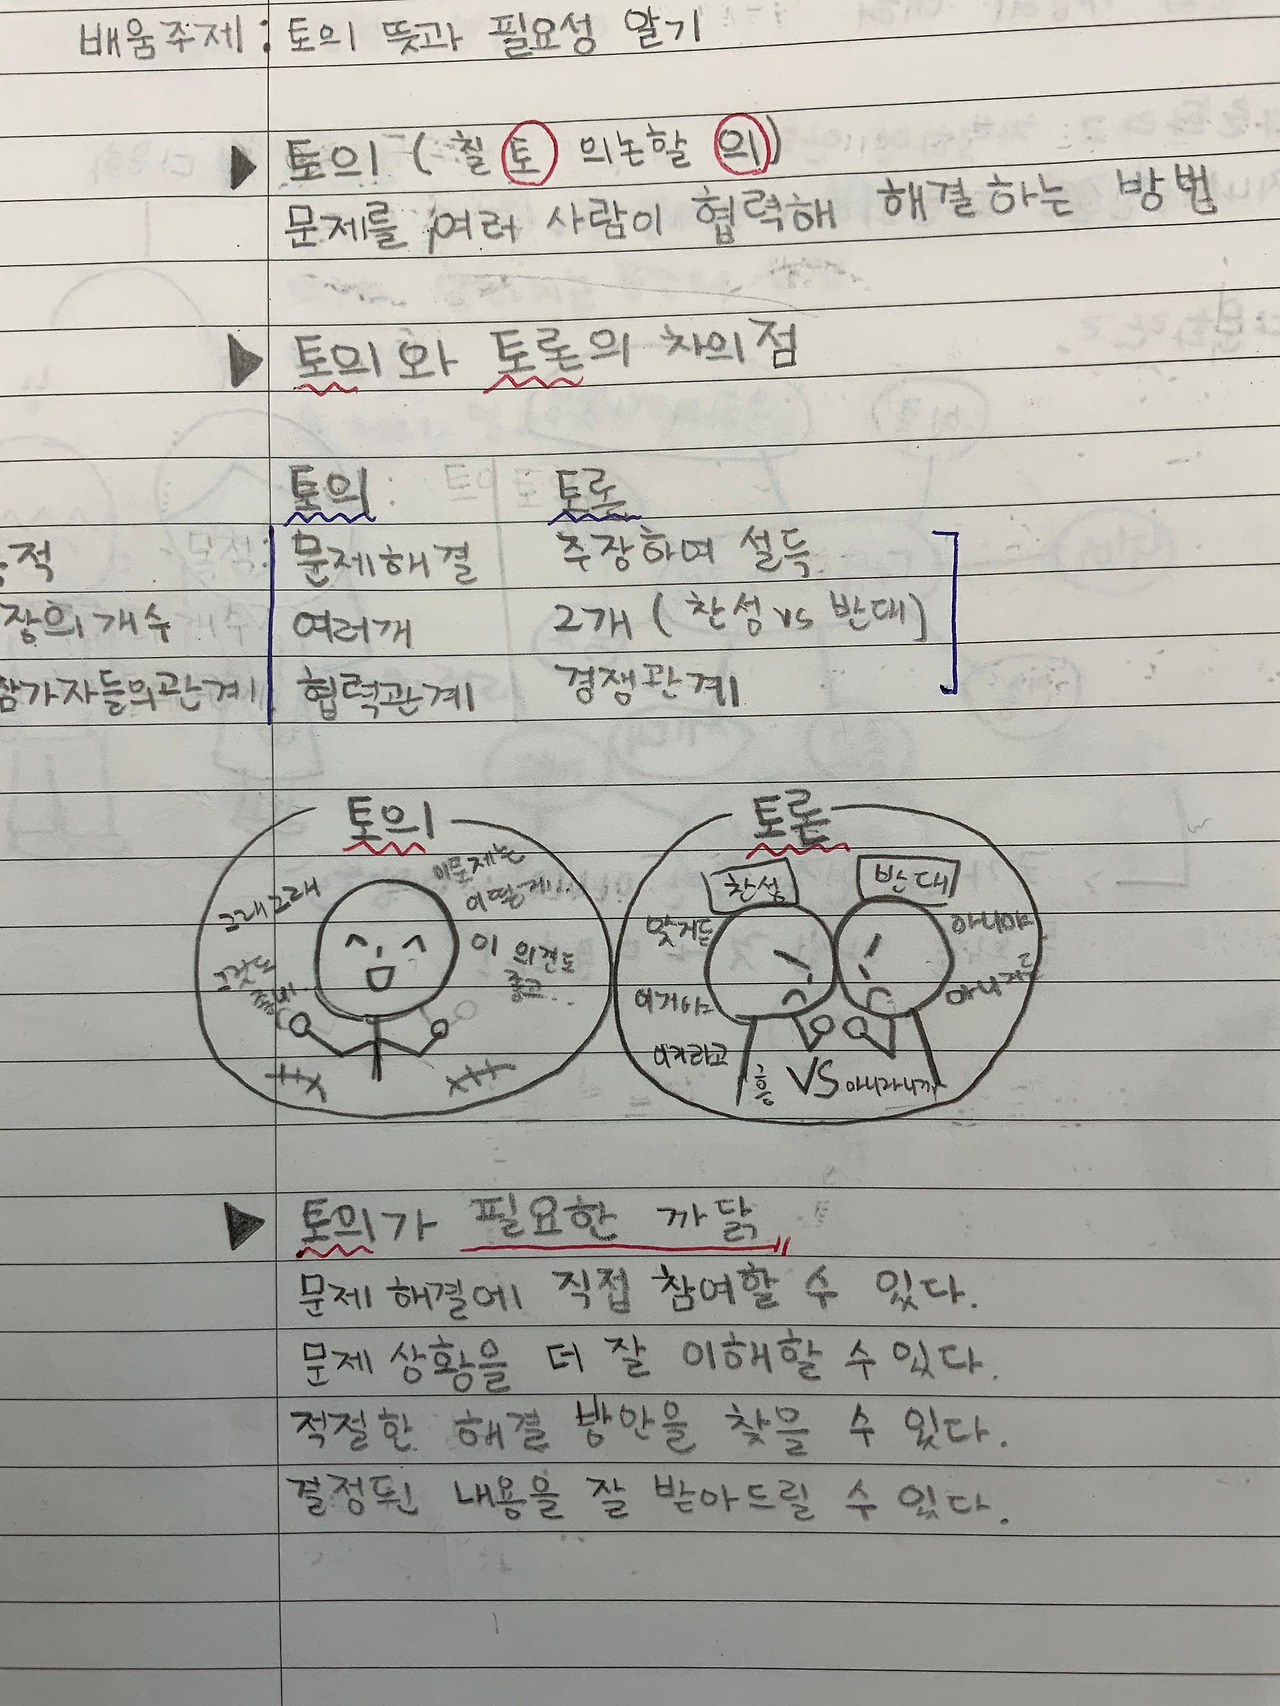 배움주제: 토의 뜻과 필요성 알기
▶ 토의 ( 칠 토 의논할 의)
문제를 여러 사람이 협력해 해결하는 방법
▶ 토의와 토론의 차의점
토의 토론
적 문제해결 주장하여 설득
장의개수 여러개 2개 (찬성 vs 반대)
참가자들의관계 협력관계 경쟁관계
토의
그래그래
이문제는
이 의견도
좋고..
그것도
토론
찬성 반대
맞거든
아니야
이거야
아니거든
이거라고
흥
VS
아니라니까
▶ 토의가 필요한 까닭
문제 해결에 직접 참여할 수 있다.
문제 상황을 더 잘 이해할 수 있다.
적절한 해결 방안을 찾을 수 있다.
결정된 내용을 잘 받아드릴 수 있다.